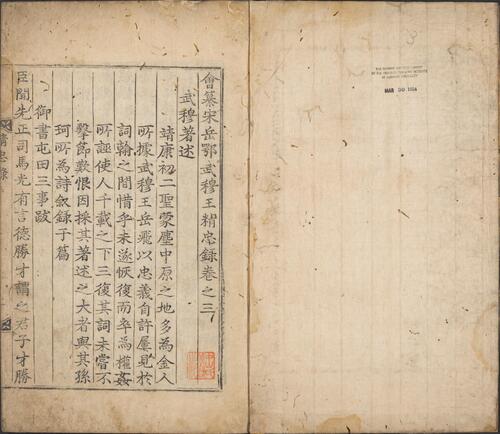 會纂宋岳鄂武穆王精忠錄卷之三
武穆著述
靖康初二聖蒙塵中原之地多為金人
所據武穆王岳飛以忠義自許屢見於
詞翰之間惜乎未遂恢復而卒為權姦
所誣使人千載之下三復其詞未嘗不
擊節歎恨因採其著述之大者與其孫
珂所為詩敘錄于篇
御書屯田三事跋
臣聞先正司馬光有言德勝才謂之君子才勝
精忠錄
MAR 30 1954